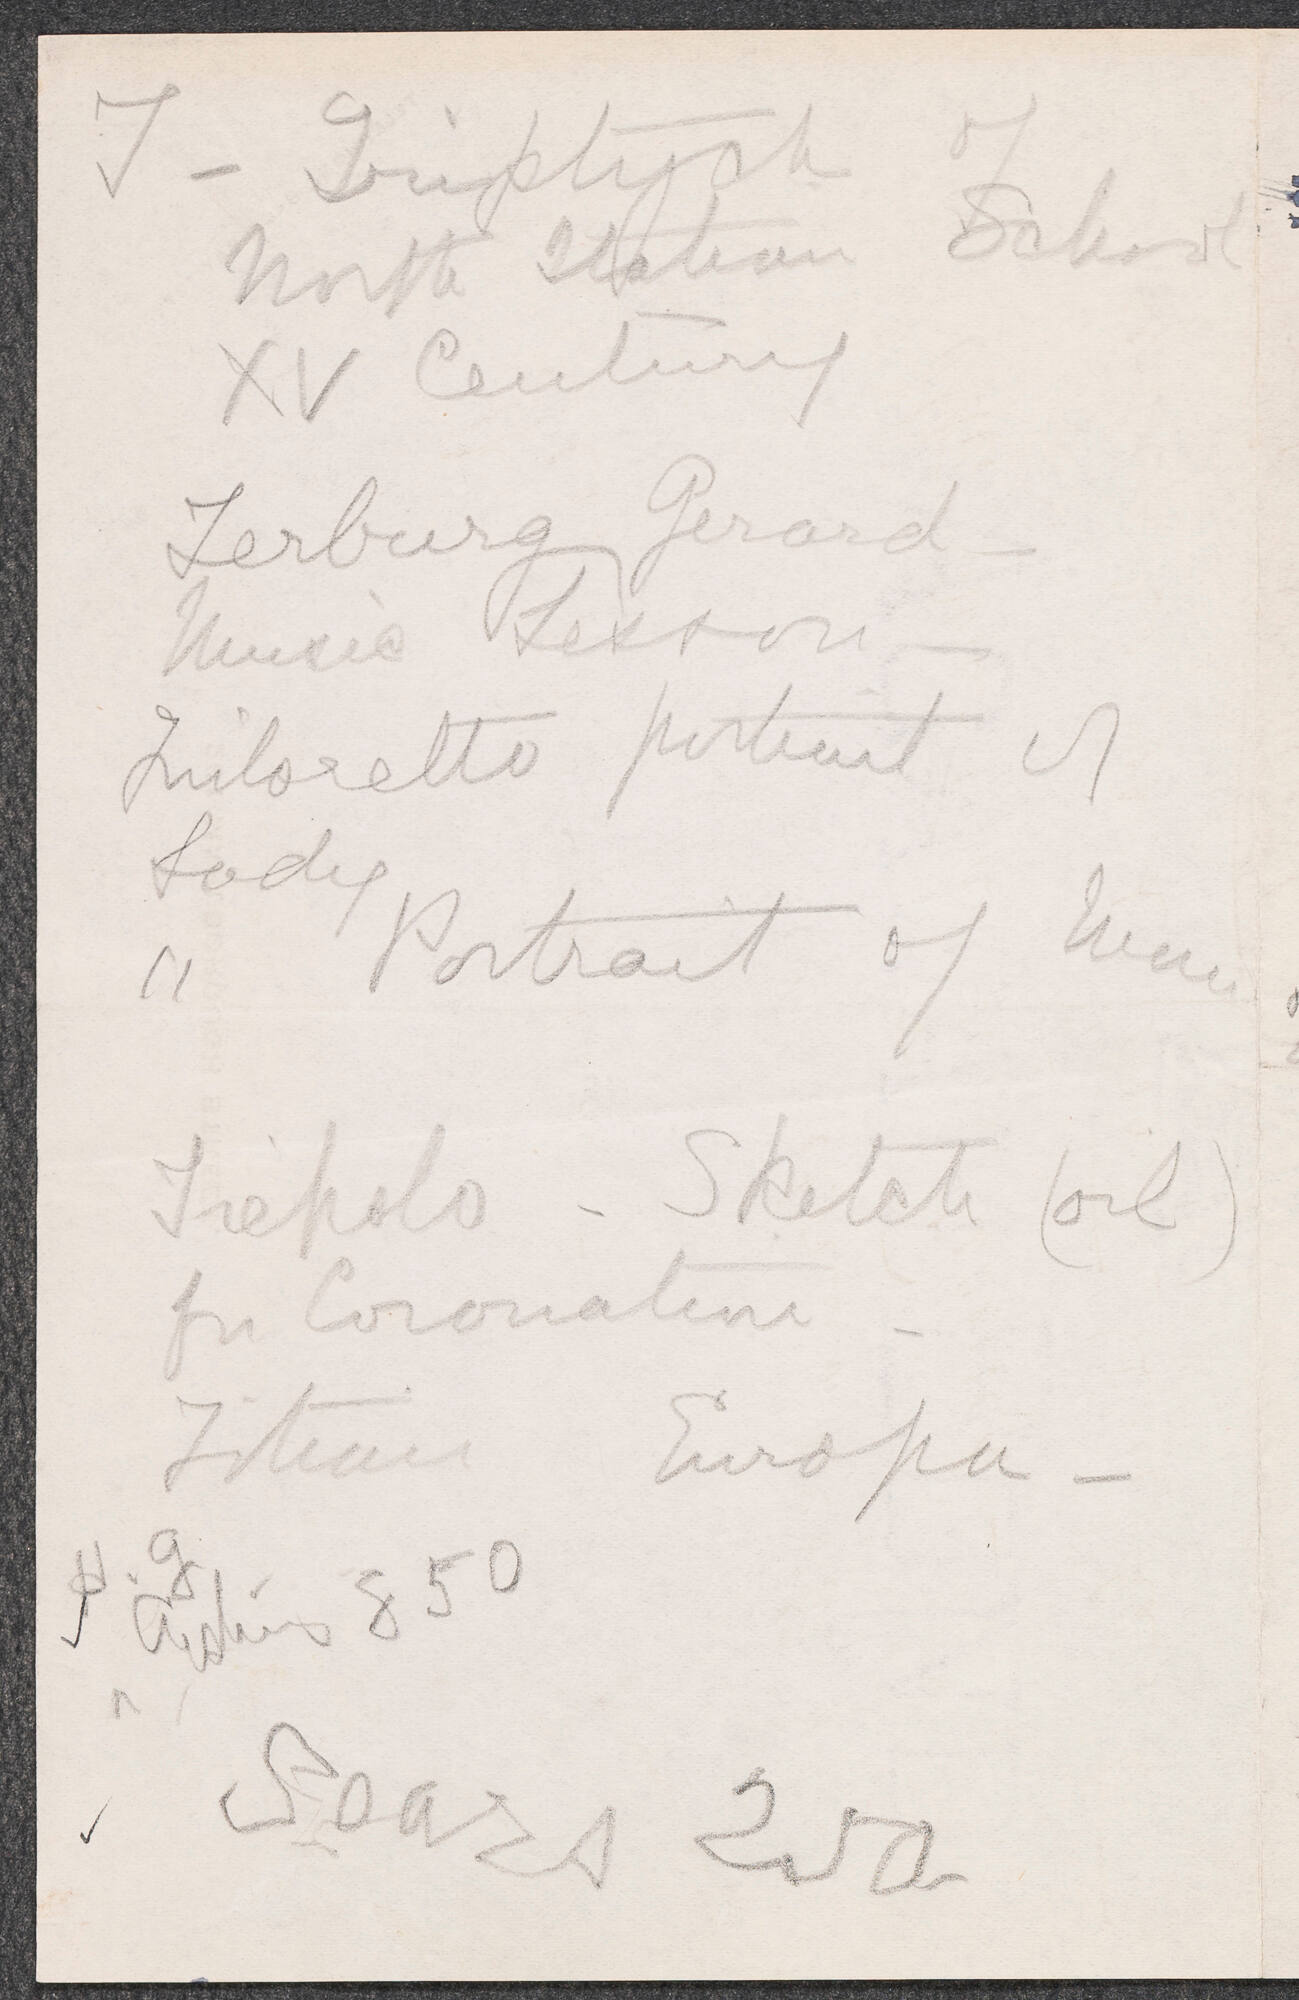 T - Triptych of
North Italian School
XV Century
Terburg, Gerard -
Music Lesson -
Tintoretto portrait of
Lady
" Portrait of Man
Tiepolo - Sketch (oil)
for Coronation -
Titian Europa -
850
Sears 250